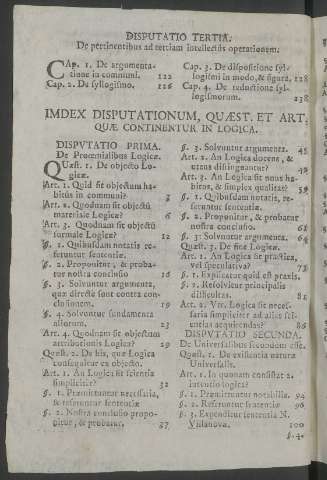 DISPUTATIO TERTIA.
De pertinentibus ad tertiam intellectus operationem.
CAp. 1. De argumentatione in communi. 122
Cap. 2. De syllogismo. 126
Cap. 3. De dispositione syllogismi in modo, & figura, 128
Cap. 4. De reductione syllogismorum. 238
IMDEX DISPUTATIONUM, QUÆST. ET ART.
QUÆ CONTINENTUR IN LOGICA.
DISPUTATIO PRIMA.
De Proœmialibus Logicæ.
QUæst. 1. De objecto Logicæ.
Art. 1. Quid sit objectum habitus in communi? 3
Art. 2. Quodnam sit objectū materiale Logicæ? 6
Art. 3. Quodnam sit objectū formale Logicæ? 12
§. 1. Quibusdam notatis referuntur sententiæ.
§. 2. Proponitur, & probatur nostra conclusio 16
§. 3. Solvuntur argumenta, quæ directè sunt contra conclusionem. 19
§. 4. Solvuntur fundamenta aliorum. 23
Art. 4. Quodnam sit objectum attributionis Logicæ? 29
Quæst. 2. De his, quæ Logica consequitur ex objecto.
Art. 1. An Logica sit scientia simpliciter? 32
§. 1. Præmittuntur necessaria, & referuntur sententiæ
§. 2. Nostra conclusio proponitur, & probatur. 37
§. 3. Solvuntur argumenta. 45
Art. 2. An Logica docens, & utens distinguantur? 49
Art. 3. An Logica sit novs habitus, & simplex qualitas? 59
§. 1. Quibusdam notatis, referuntur sententiæ.
§. 2. Proponitur, & probatur nostra conclusio. 61
§. 3. Solvuntur argumenta. 64
Quæst. 3. De fine Logicæ.
Art. 1. An Logica sit practica, vel speculativa? 75
§. 1. Explicatur quid est praxis.
§. 2. Resolvitur principalis difficultas. 81
Art. 2. Vm Logica sit necessaria simpliciter ad alias scientias acquirendas? 86
DISPUTATIO SECUNDA.
De Universalibus secundum esse.
Quæst. 1. De existentia naturæ Universalis.
Art. 1. In quonam consistat 2. intentio logica?
§. 1. Præmittuntur notabilia. 94
§. 2. Referuntur sententiæ 96
§. 3. Expenditur sententia N. Villanova. 100
§. 4.